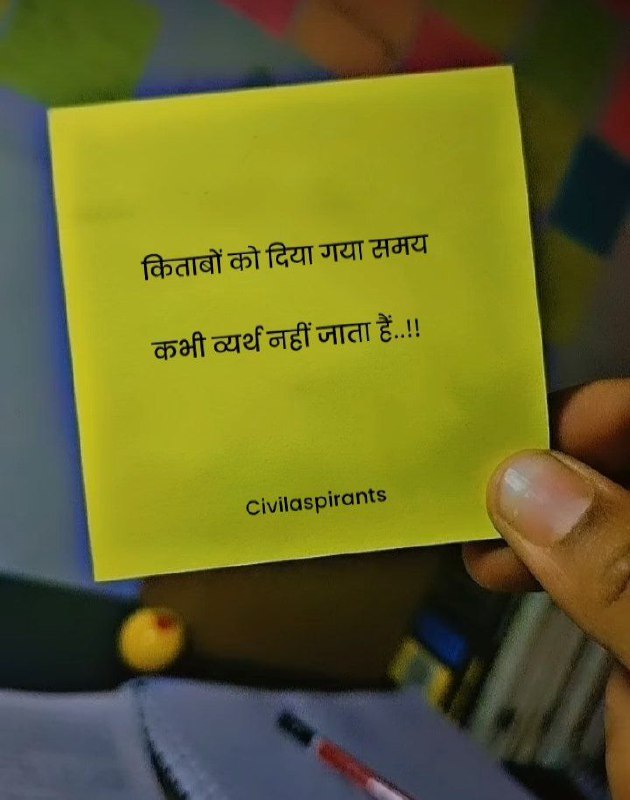 किताबों को दिया गया समय
कभी व्यर्थ नहीं जाता हैं..!!
Civilaspirants